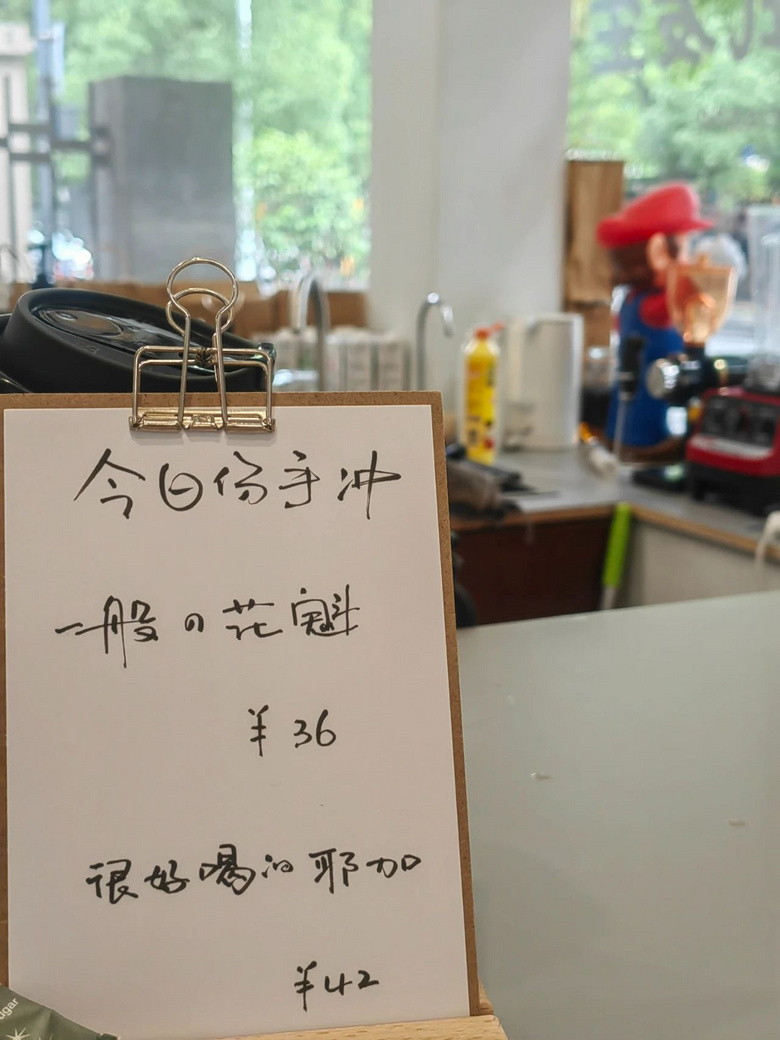 今日份手冲
一般の花魁
¥36
很好喝的耶加
¥42
ugar